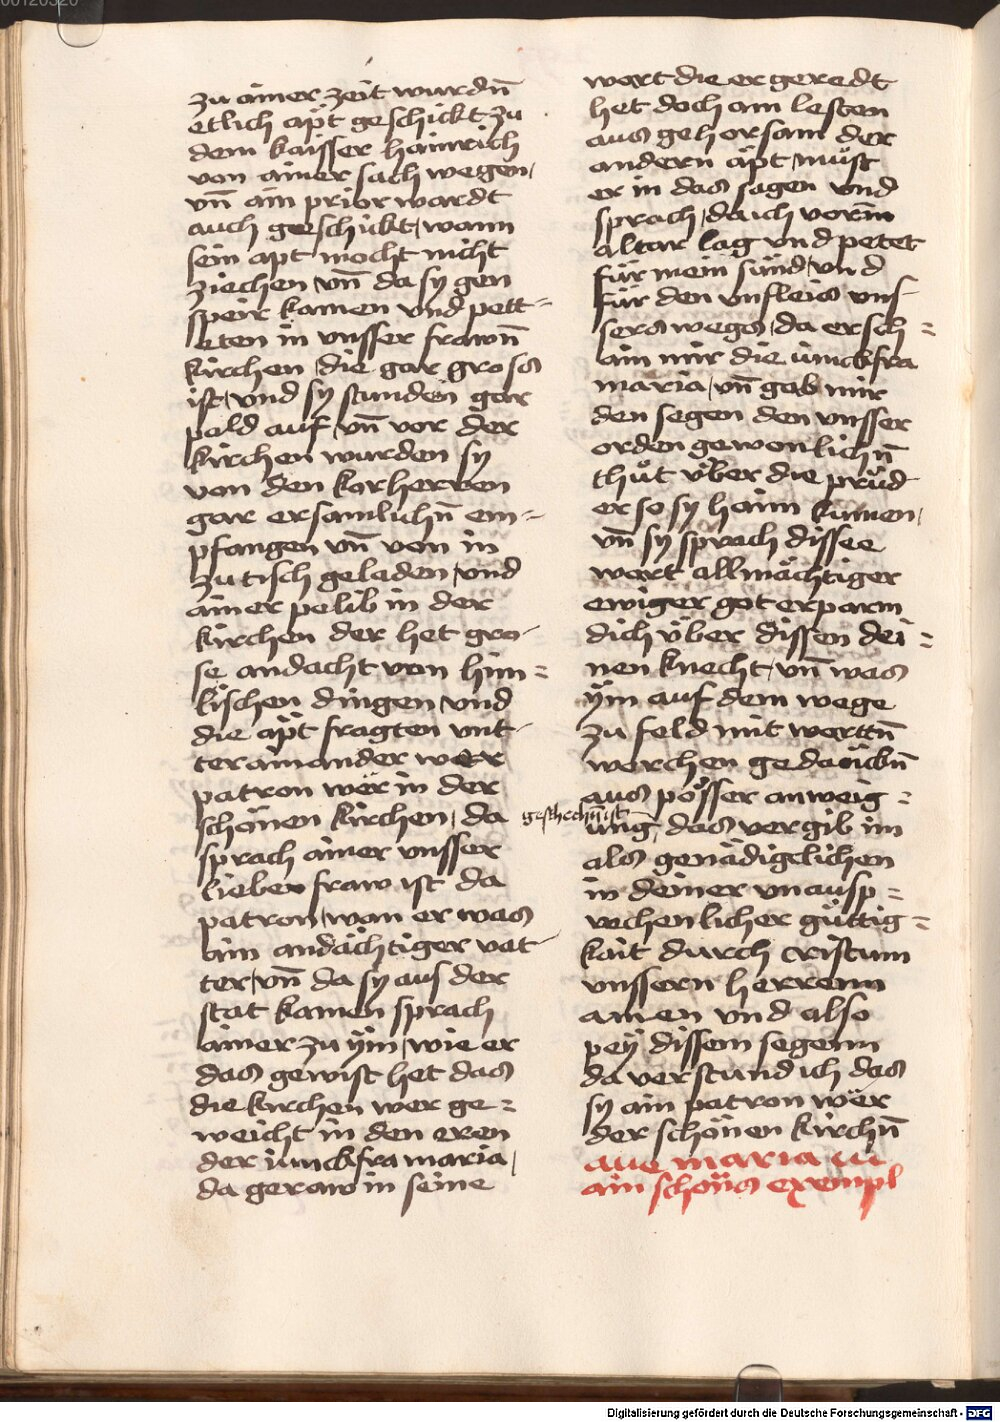 zu ainer zeit wurdn̄
etlich äpt geschickt zu
dem kaisser hainrich
von ainer sach wegen,
vn̄ ain prior wardt
auch geschickt, wann
sein apt mocht nicht
ziechen vn̄ da sy gen
speir kamen vnd pett=
eten in vnsser frawn̄
kirchen, die gar gross
ist, vnd sy stunden gar
pald auf, vn̄ vor der
kirchen wurden sy
von den korherren
gar ersamlichn̄ em=
pfangen vn̄ von in
zu tisch geladen, vnd
ainer pelib in der
kirchen der het gro-
se andacht von him=
lischen dingen vnd
die äpt fragten vnt-
terainander wer
patron wër in der
schönen kirchen, da
sprach ainer vnsser
lieben fraw ist da
patron, wan er was
ain andächtiger vat-
ter, vn̄ da sy aus der
stat kamen sprach
ainer zu ÿm, wie er
das gewist het das
die kirchen wer ge=
weicht in den eren
der iunckfra maria,
da geraw in seine
wort die er geredt
het doch am lesten
aus gehorsam der
andern äpt müst
er in das sagen vnd
sprach, da ich vorm
altar lag vnd petet
für mein sünd, vnd
für den vnfleis vns-
sers wegs, da ersch=
ain mir die iunckfra
maria, vn̄ gab mir
den segen den vnsser
orden gewonlichn̄
thůt vber die prüd
er so sy haim kumen,
vn̄ sy sprach disse
wort allmächtiger
ewiger got erparm
dich vber dissen dei=
nen knecht, vn̄ was
ÿm auf dem wege
zu feld mit wortn̄
worchen gedänckn̄
aus pösser anweig=
ung geschechn̄ ist, das vergib im
als genädigclichen
in deiner vnausp=
rechenlicher güttig=
kait durch cristum
vnssern herrenn
amen vnd also
pey dissem segenn
da verstund ich das
sy ain patron wër
der schönen kirchn̄
aue maria
ain schöns exempl
Digitalisierung gefördert durch die Deutsche Forschungsgemeinschaft - DFG